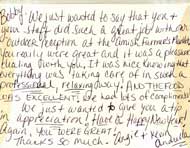 Bobby, We just wanted to say that you &
your staff did such a great job with our
outdoor reception at the Amish Farmers Market
You really were great and it was a pleasure
working with you. It was nice knowing that
everything was taking care of in such a
professional, relaxing way! AND THE FOOD
WAS EXCELLENT! We had lots of compliments!
We just wanted to give you a tip
in appreciation! Have a Happy New Year!
Again, YOU WERE GREAT!
Thanks so much. Angie & Kevin